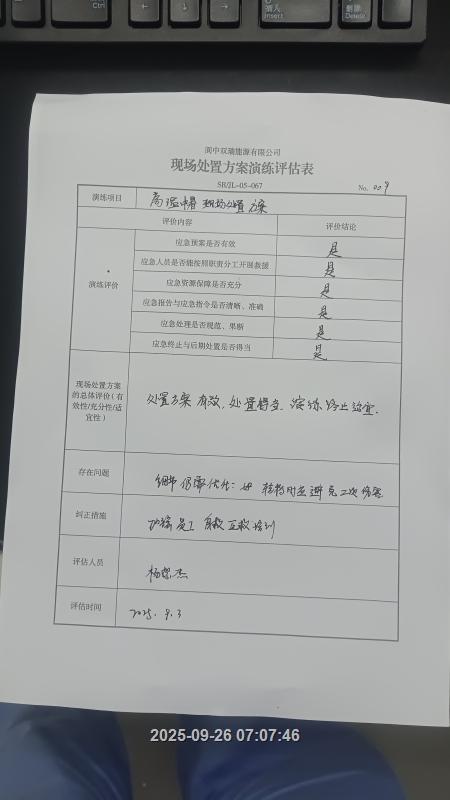 Ctrl
插入
Insert
删除
Delete
阆中双瑞能源有限公司
现场处置方案演练评估表
SR/JL-05-067
No. 009
演练项目
高温中暑现场处置方案
评价内容
评价结论
演练评价
应急预案是否有效
是
应急人员是否能按照职责分工开展救援
是
应急资源保障是否充分
是
应急报告与应急指令是否清晰、准确
是
应急处理是否规范、果断
是
应急终止与后期处置是否得当
是
现场处置方案
的总体评价(有
效性/充分性/适
宜性)
处置方案有效,处置得当,演练终止适宜.
存在问题
细节仍需优化:如 转移时应避免二次伤害
纠正措施
加强员工自救互救培训
评估人员
杨 杰
评估时间
2025. 9.3
2025-09-26 07:07:46